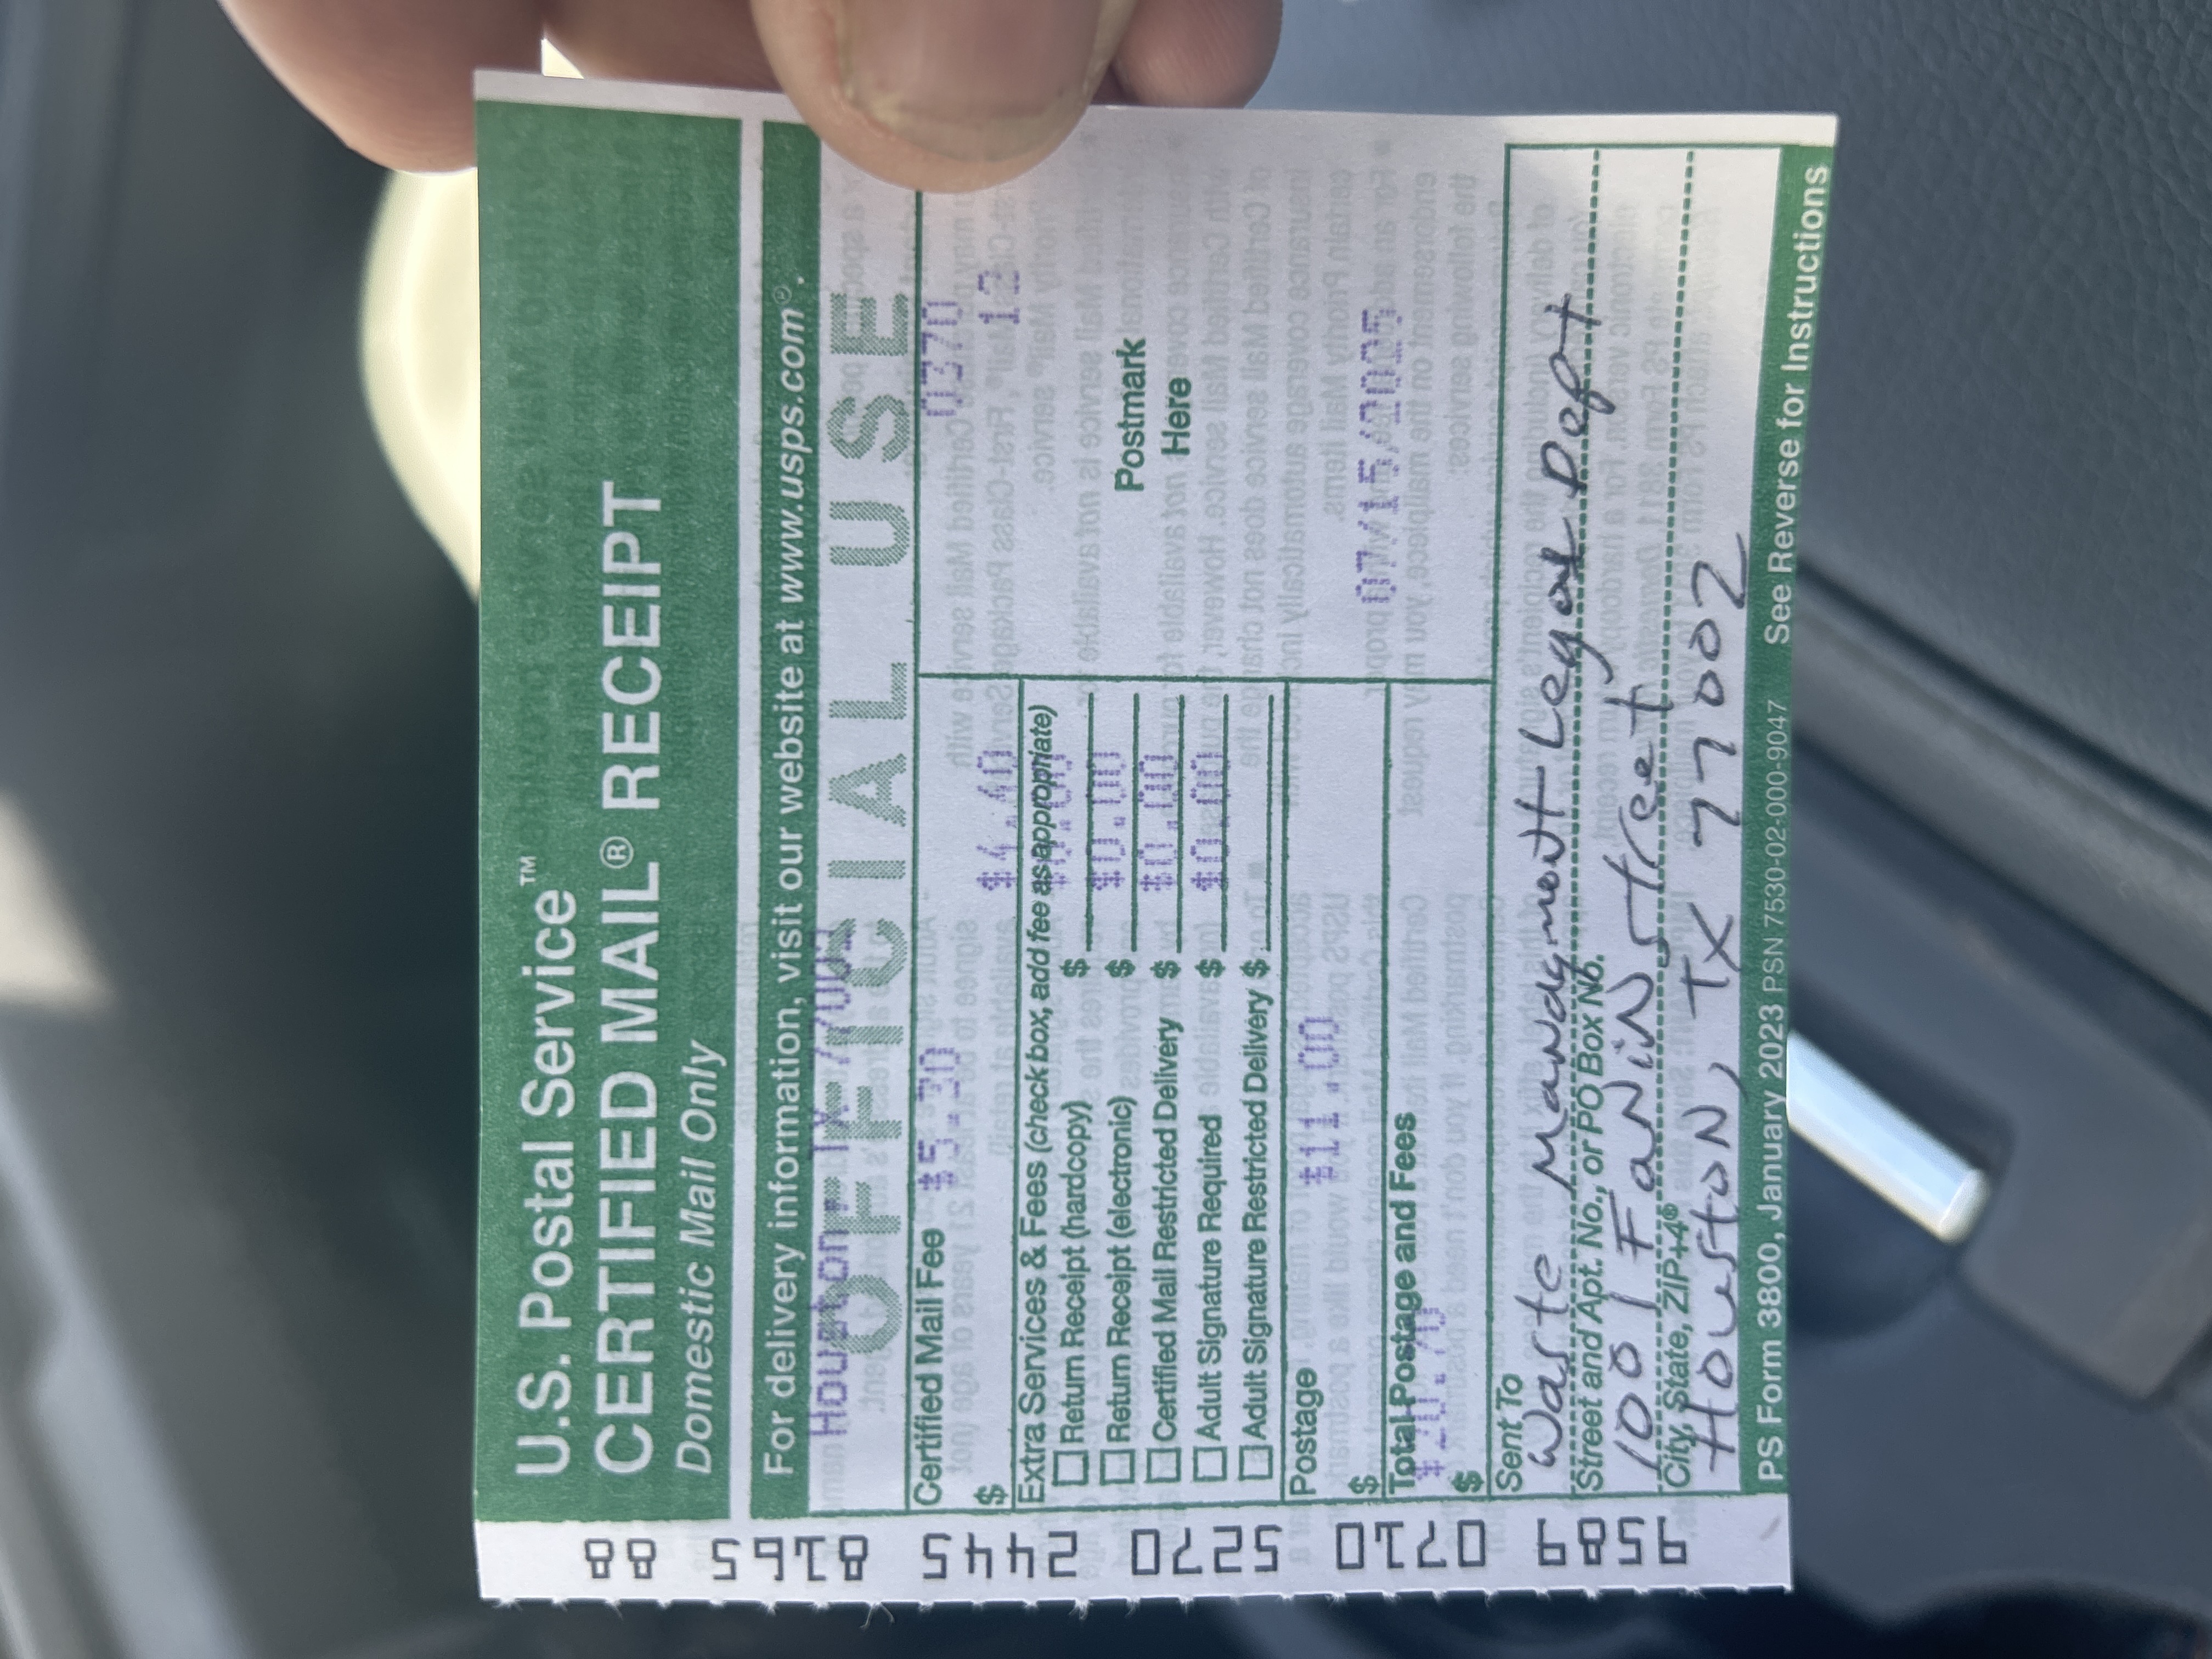 U.S. Postal Service™
CERTIFIED MAIL® RECEIPT
Domestic Mail Only
For delivery information, visit our website at www.usps.com®.
Houston, TX 77002
OFFICIAL USE
Certified Mail Fee $5.30
$
$4.40
Extra Services & Fees (check box, add fee as appropriate)
$0.00
Return Receipt (hardcopy) $
Return Receipt (electronic) $ $0.00
Certified Mail Restricted Delivery $ $0.00
Adult Signature Required $ $0.00
Adult Signature Restricted Delivery $
Postage $11.00
$
Total Postage and Fees
$20.70
$
0370
12
Postmark
Here
07/15/2025
Sent To
Waste Managment Legal Dept
Street and Apt. No., or PO Box No.
1001 FaNiN street
City, State, ZIP+4®
HoustoN, TX 77002
PS Form 3800, January 2023 PSN 7530-02-000-9047 See Reverse for Instructions
9589 0710 5270 2445 8165 88